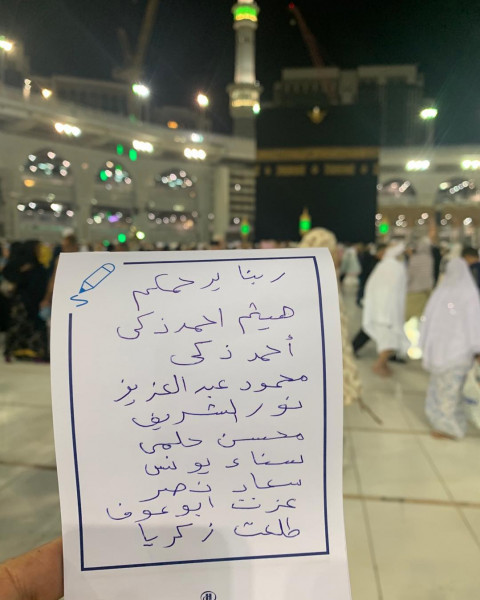 ربنا يرحمكم
هيثم احمد زكى
أحمد زكى
محمود عبد العزيز
نور الشريف
محسن حلمى
سناء يونس
سعاد نصر
عزت ابوعوف
طلعت زكريا